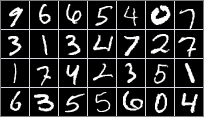 9 6 6 5 4 0 7
3 1 3 4 7 2 7
1 7 4 2 3 5 1
6 3 5 5 6 0 4